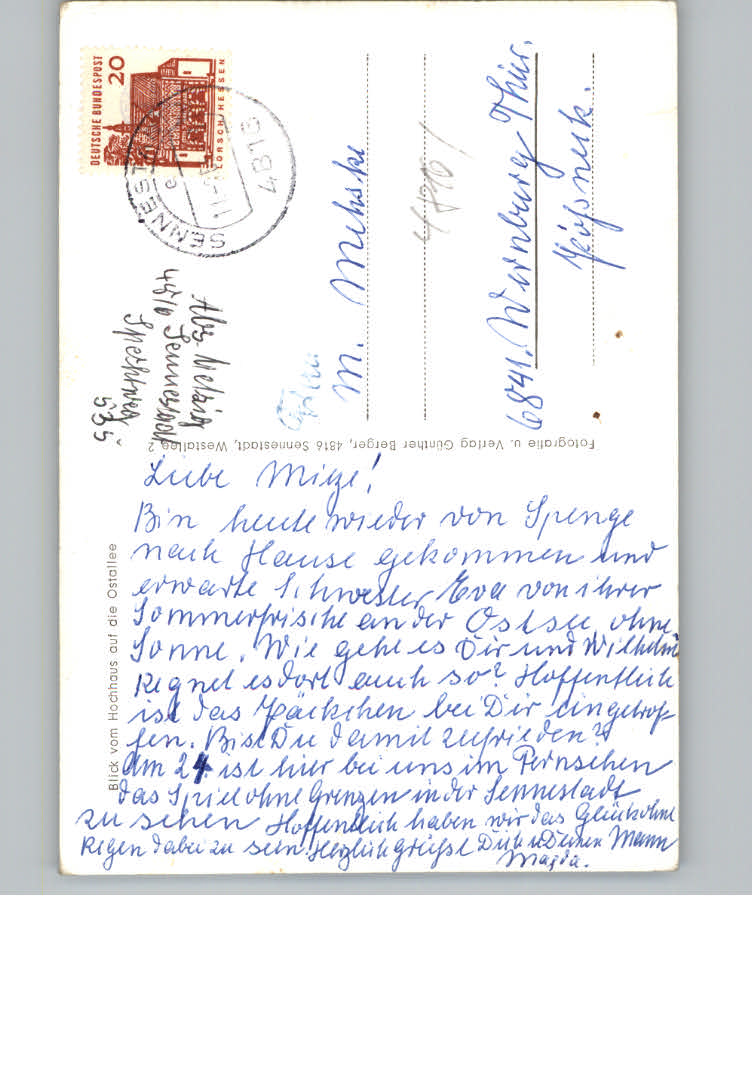 Liebe Mieze!
Bin heute wieder von Spenge
nach Hause gekommen und
erwarte Schwester Eva von ihrer
Sommerfrische an der Ostsee ohne
Sonne. Wie geht es Dir und Wilhelm
Regnet es dort auch so? Hoffentlich
ist das Päckchen bei Dir eingetrof-
fen. Bist Du damit zufrieden?
Am 24 ist hier bei uns im Fernsehen
das Spiel ohne Grenzen in der Sennestadt
zu sehen Hoffentlich haben wir das Glück ohne
Regen dabei zu sein. Herzlich grüßt Dich u Deinen Mann
Magda.
Blick vom Hochhaus auf die Ostallee
Fotografie u. Verlag Günther Berger, 4816 Sennestadt, Westallee 2
Abs. Metzig
4816 Sennestadt
Spechtweg
M. Mehske
4801
6841. Wernburg Thür.
Pößneck.
DEUTSCHE BUNDESPOST
20
LORSCH/HESSEN
4816
SENNESTADT